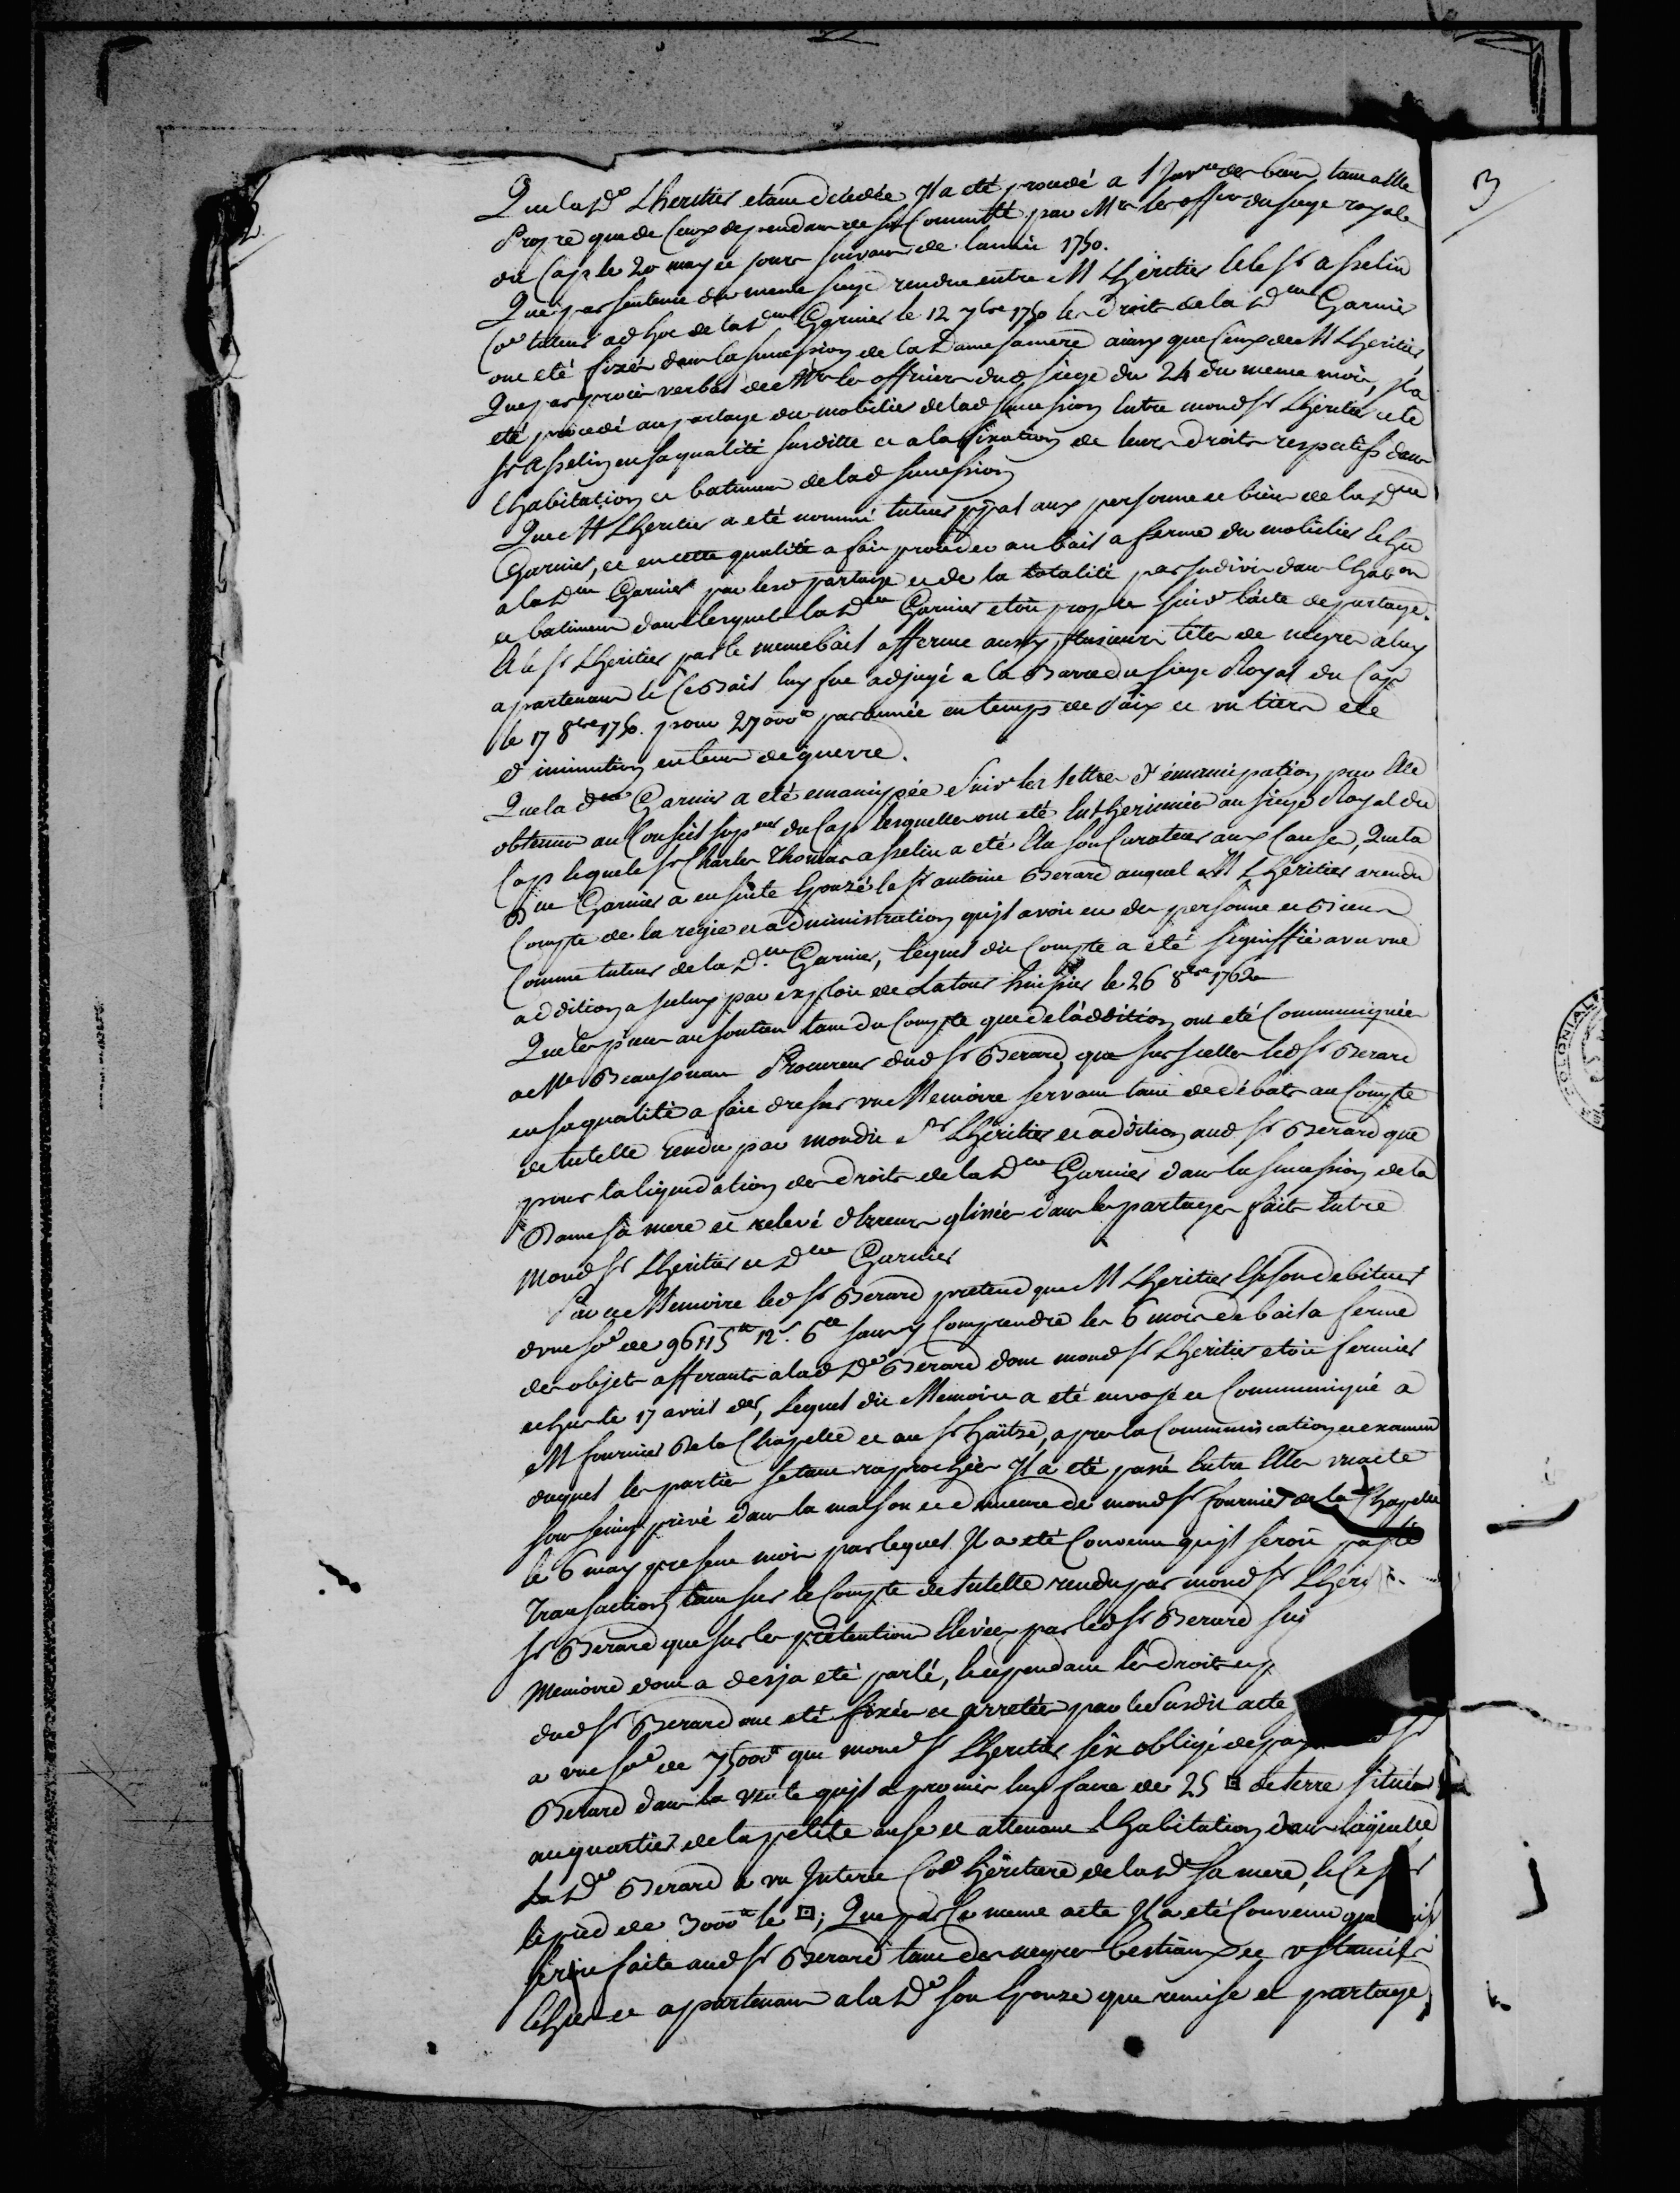 3
Que lad.e Lheritier etant decedée Il a été procedé a l'Inv.re des biens tant a elle
Propre que de Ceux dependans de sa Communté par Mrs les off.ers du siege royale
du Cap le 20 may et jours suivans de l'année 1750.
Que par sentence du meme siege rendue entre M Lheritier et le Sr asselin
Co.e tuteur ad hoc de la D.lle Garnier le 12 7bre 1750 les droits de la D.lle Garnier
ont eté fixés dans la succession de la Dame sa mere ainsy que ceux de M Lheritier
Que par procés verbal de Mrs les officiers dud siege du 24 du meme mois, Il a
eté procedé au partage du mobilier de lad succession entre mond Sr Lheritier et le
Sr asselin en sa qualité susditte et a la fixation de leurs droits respectifs dans
l'habitation et batimens de lad succession
Que M Lheritier a eté nommé tuteur ppal aux personne et biens de la D.lle
Garnier, et en cette qualité a fait proceder au bail a ferme du mobilier Echu
a la D.lle Garnier par led partage et de la totalité par Indivis dans l'hab.on
et batimens dans lesquels la D.lle Garnier etoit prop.re suiv.t l'acte de partage.
Et le Sr Lheritier par le meme bail afferme aussy plusieurs têtes de negres a luy
apartenans et Ce Bail luy fut adjugé a la Barre du siege Royal du Cap
le 17 8bre 1750. pour 27000# par année en temps de Paix et un tiers de
diminution en tems de guerre.
Que la d.lle Garnier a eté emancipée suiv.t les lettres d'émancipation par Elle
obtenues au Conseil sup.eur du Cap lesquelles ont eté Entherinnées au siege Royal du
Cap lequel le Sr Charles Thomas asselin a eté Elu son Curateur aux Causes, Que la
D.lle Garnier a ensuite Epouzé le Sr antoine Berard auquel M Lheritier a rendu
Compte de la regie et administration qu'il avoit eu des personne et Biens
Comme tuteur de la D.lle Garnier, lequel dit Compte a été signiffié avec une
addition a iceluy par exploit de Latour huissier le 26 8bre 1762
Que les pieces au soutien tant du Compte que de l'addition ont eté Communiquées
a Me Beaujouan Procureur dud Sr Berard, que sur icelles led Sr Berard
en sa qualité a fait dresser un Memoire servant tant de débats au Compte
de tutelle rendu par mondit Sr Lheritier et addition aud Sr Berard que
pour la liquidation des droits de la D.lle Garnier dans la succession de la
Dame sa mere et relevé d'Erreurs glissées dans les partages faits Entre
mond Sr Lheritier et D.lle Garnier
Par ce Memoire led Sr Berard pretend que M Lheritier Est son debiteur
d'une so.e de 96115# 12s. 6d sans y Comprendre les 6 mois de bail a ferme
des objets afferants a lad D.e Berard dont mond Sr Lheritier etoit fermier
echus le 17 avril der, Lequel dit Memoire a eté envoyé et Communiqué a
M fournier De la Chapelle et au Sr haître, apres la Communication et examen
duquel les parties s'etant raprochées Il a eté passé Entre Elles un acte
sous seing privé dans la maison et demeure de mond Sr fournier de la Chapelle
le 6 may present mois par lequel Il a eté Convenu qu'il seroit passé
Transaction tant sur le Compte de tutelle rendu par mond Sr Lheri
Sr Berard que sur les prétentions Elevées par led Sr Berard sui
memoire dont a desja eté parlé, & cependant les droits
dud Sr Berard ont eté fixés et arretés par le susdit acte
a une so.e de 75000# que mond Sr Lheritier s'est obligé de pay
Berard dans la vente qu'il a promis luy faire de 25 ⊡ de terre situées
au quartier de la petite anse et attenant l'habitation dans laquelle
la D.e Berard a un Interet Co.e héritiere de la D.e sa mere, et ce sur
le pied de 3000# le ⊡; Que par le meme acte Il a eté Convenu que
seroit faite aud Sr Berard tant des negres bestiaux et ustanciles
Echus et apartenans a la D.e son Epouze que remise et partage